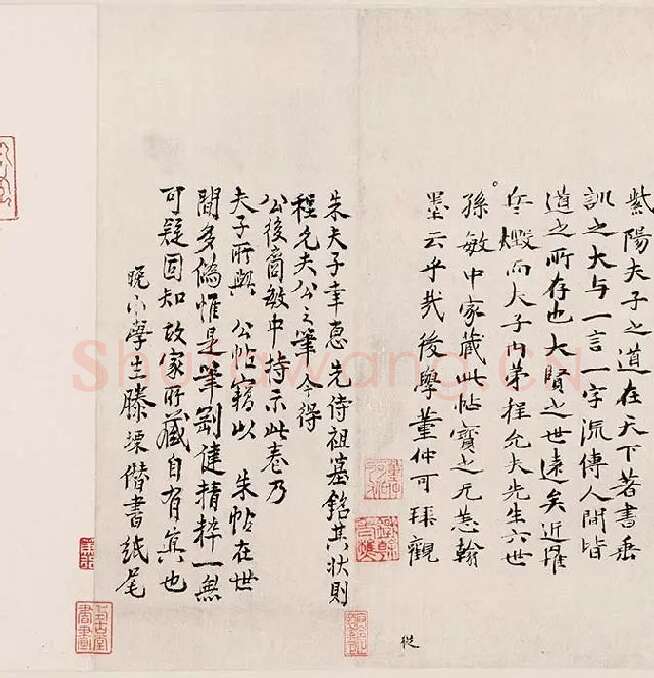 紫陽夫子之道在天下著書垂
訓之大与一言一字流傳人間皆
道之所存也大賢之世遠矣近罹
兵燬而夫子内弟程允夫先生六世
孫敏中家藏此帖寶之尤甚翰
墨云乎哉後學董仲可拜觀
朱夫子幸惠先侍祖墓銘其狀則
程允夫公之筆今得
公後裔敏中持示此卷乃
夫子所與 公帖竊以 朱帖在世
間多偽惟是筆勁健精粹一無
可疑固知故家所藏自有真也
晚小學生滕塛僭書紙尾
從